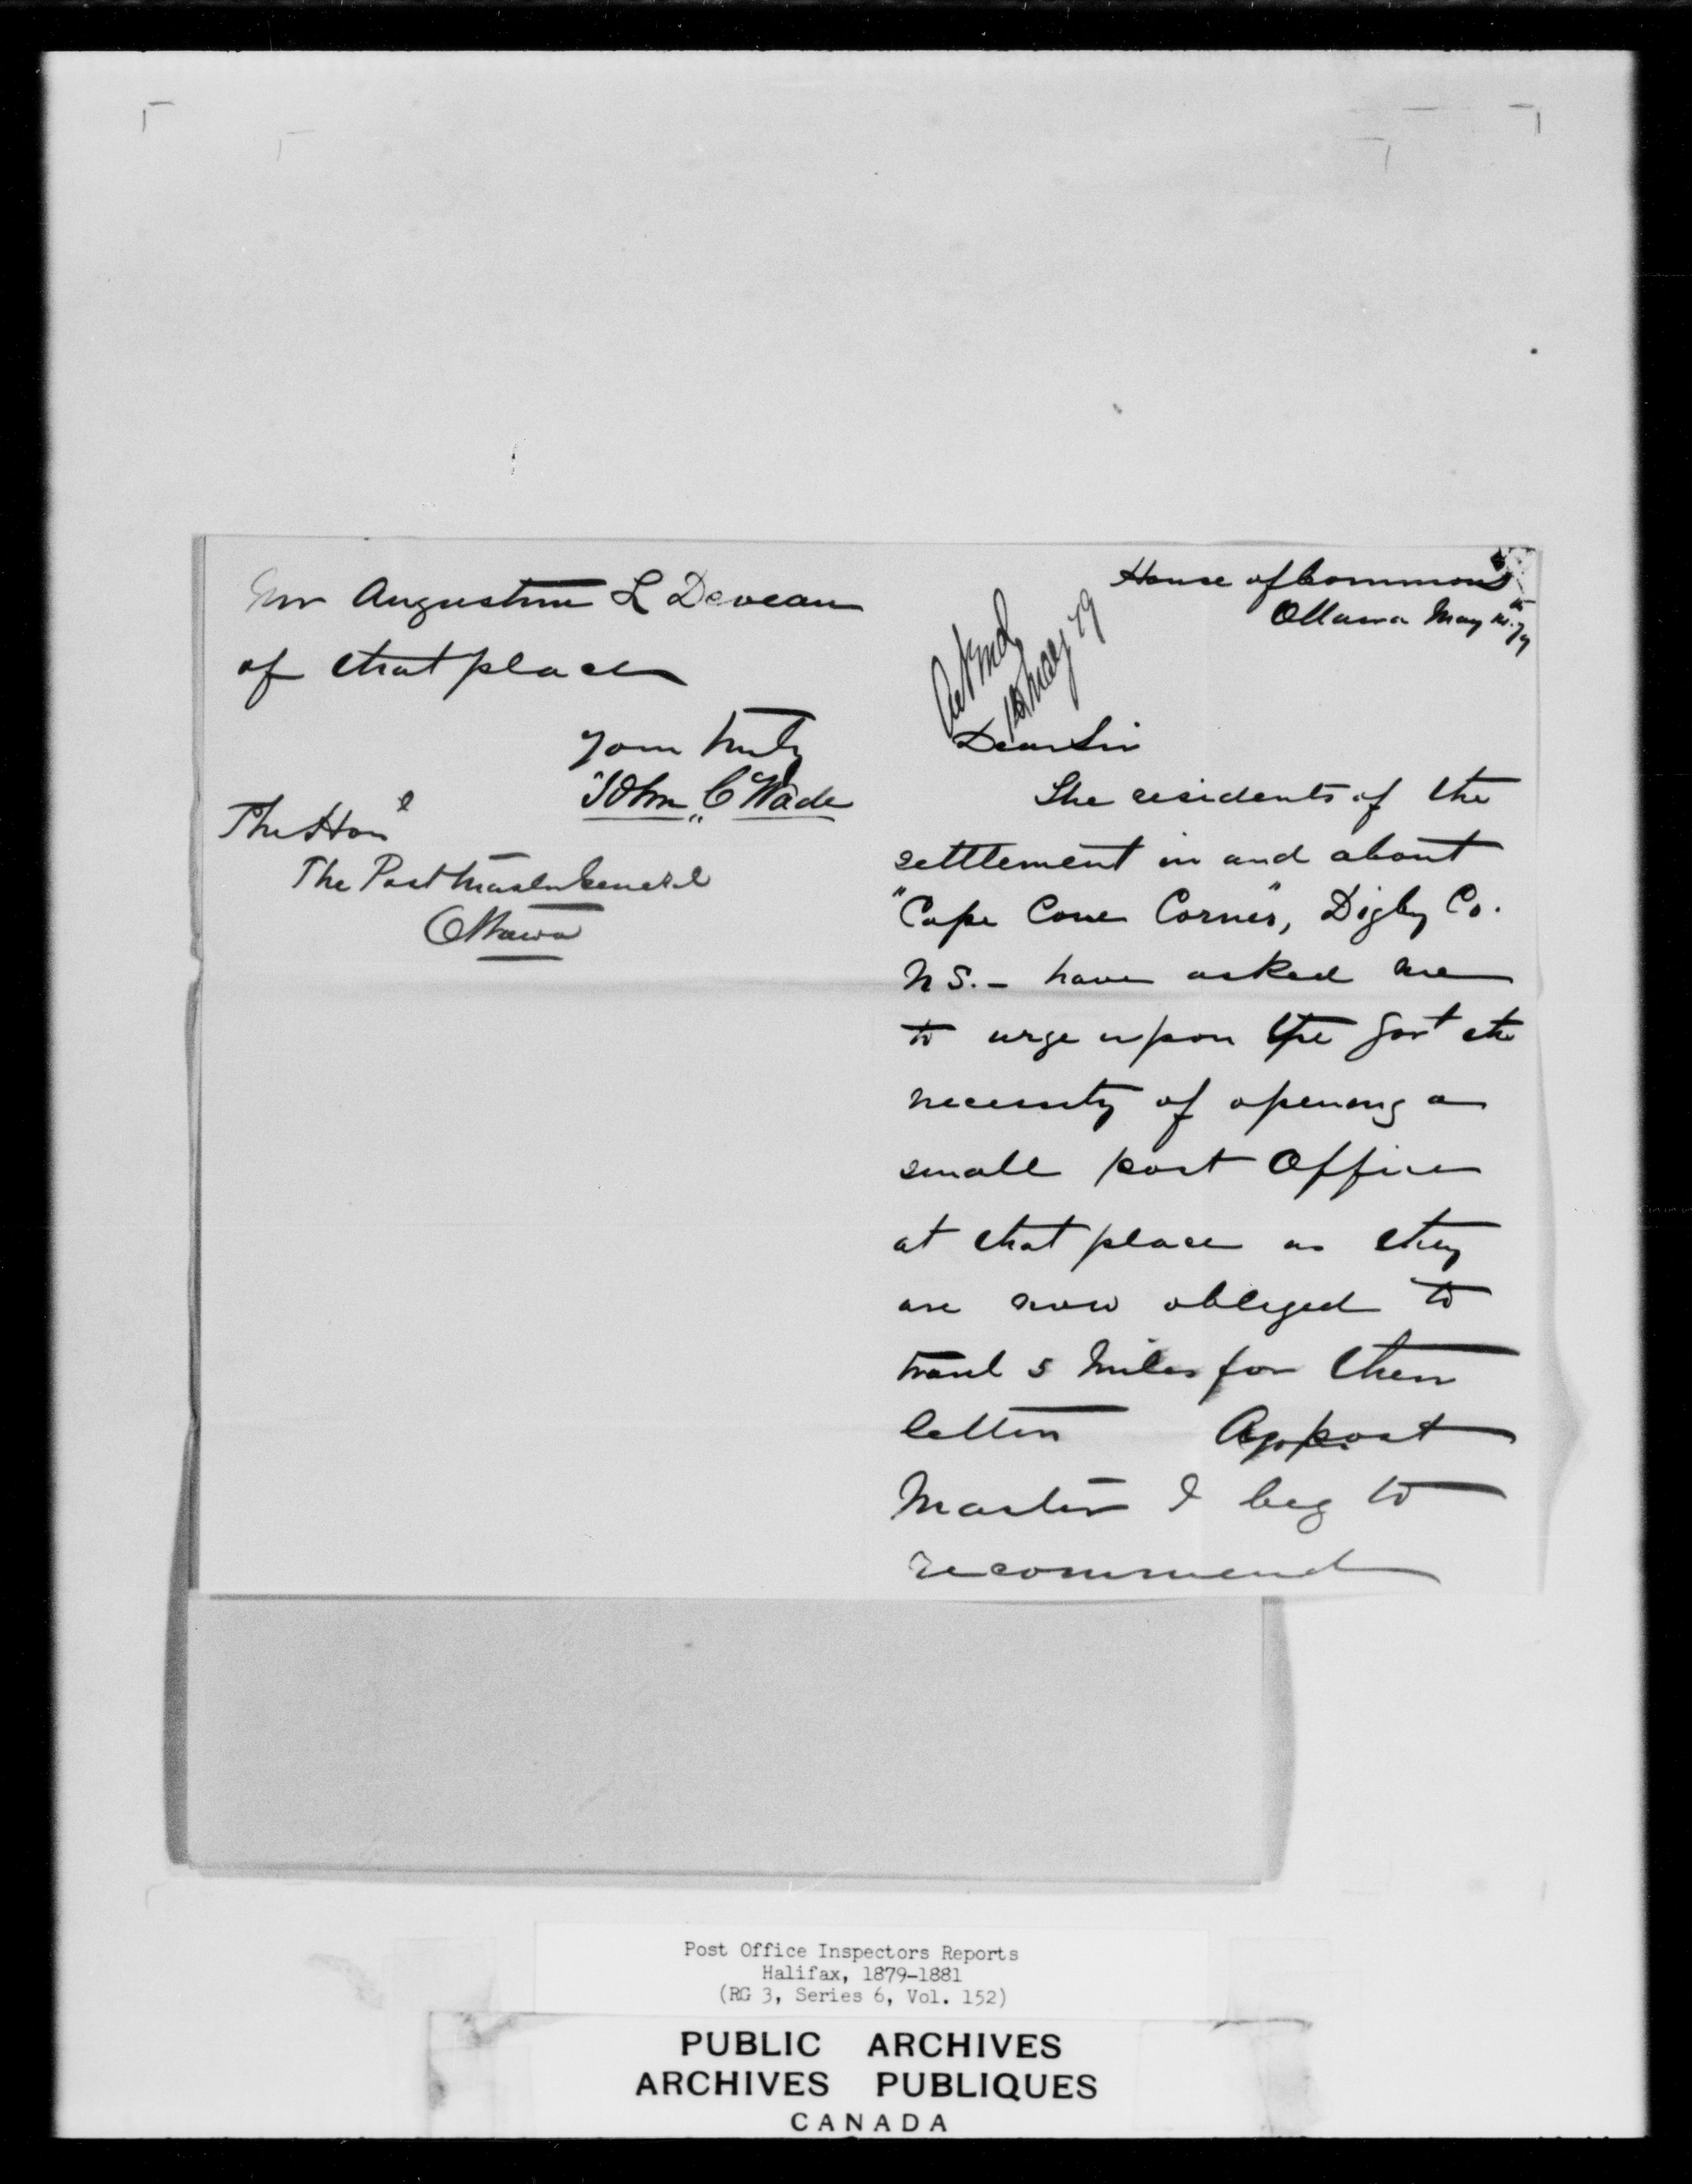 House of Commons
Ottawa May
Ack'd
May 79
Dear Sir
The residents of the
settlement in and about
"Cape Cove Corner", Digby Co.
N S. - have asked me
to urge upon the Govt the
necessity of opening a
small post Office
at that place as they
are now obliged to
travel 5 miles for their
letters As post
Master I beg to
recommend
Mr Augustine L Deveau
of that place
Yours truly
John C Wade
The Honl
The Post Master General
Ottawa
Post Office Inspectors Reports
Halifax, 1879-1881
(RG 3, Series 6, Vol. 152)
PUBLIC ARCHIVES
ARCHIVES PUBLIQUES
CANADA